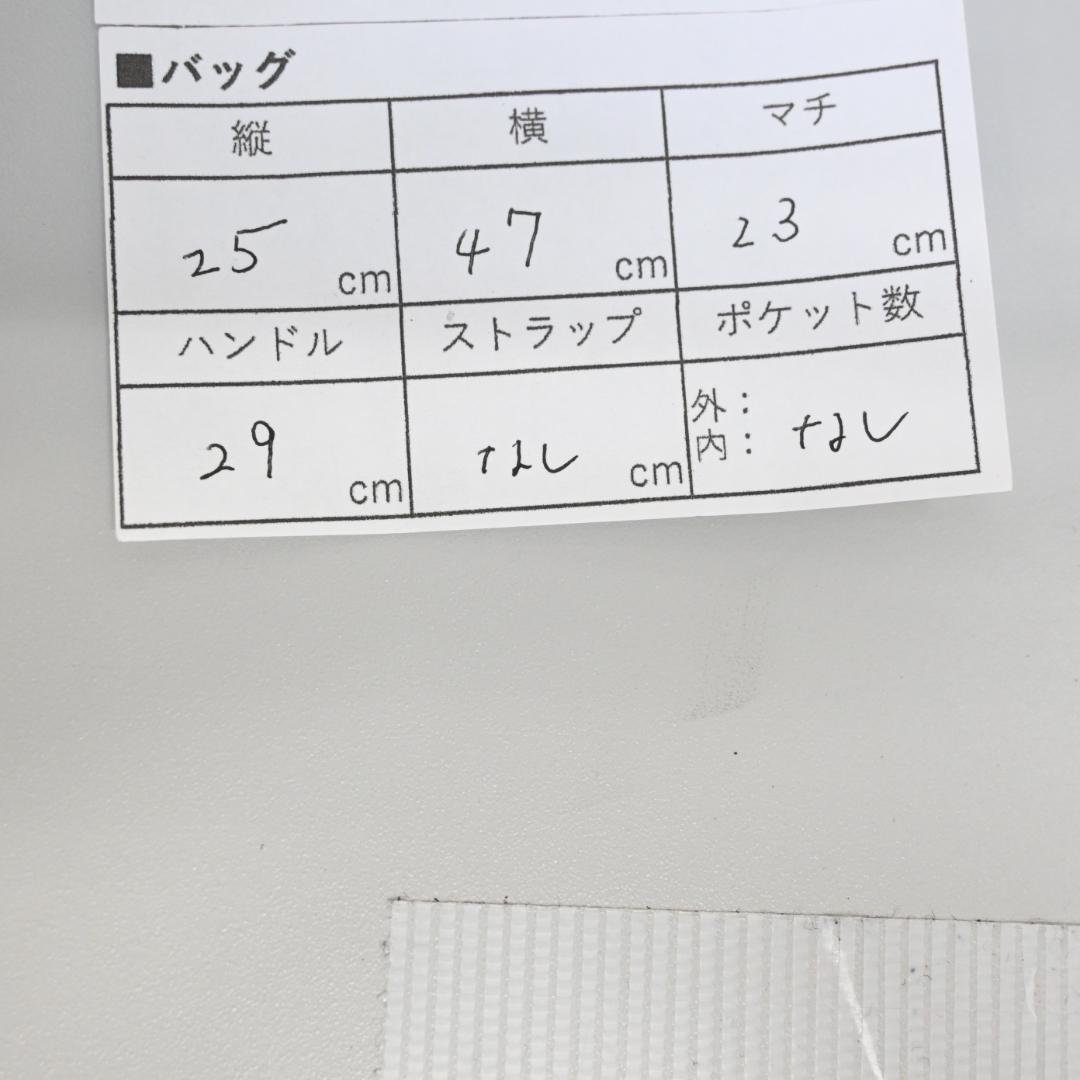 ■バッグ
縦 横 マチ
25 cm 47 cm 23 cm
ハンドル ストラップ ポケット数
29 cm なし cm 外：
内： なし